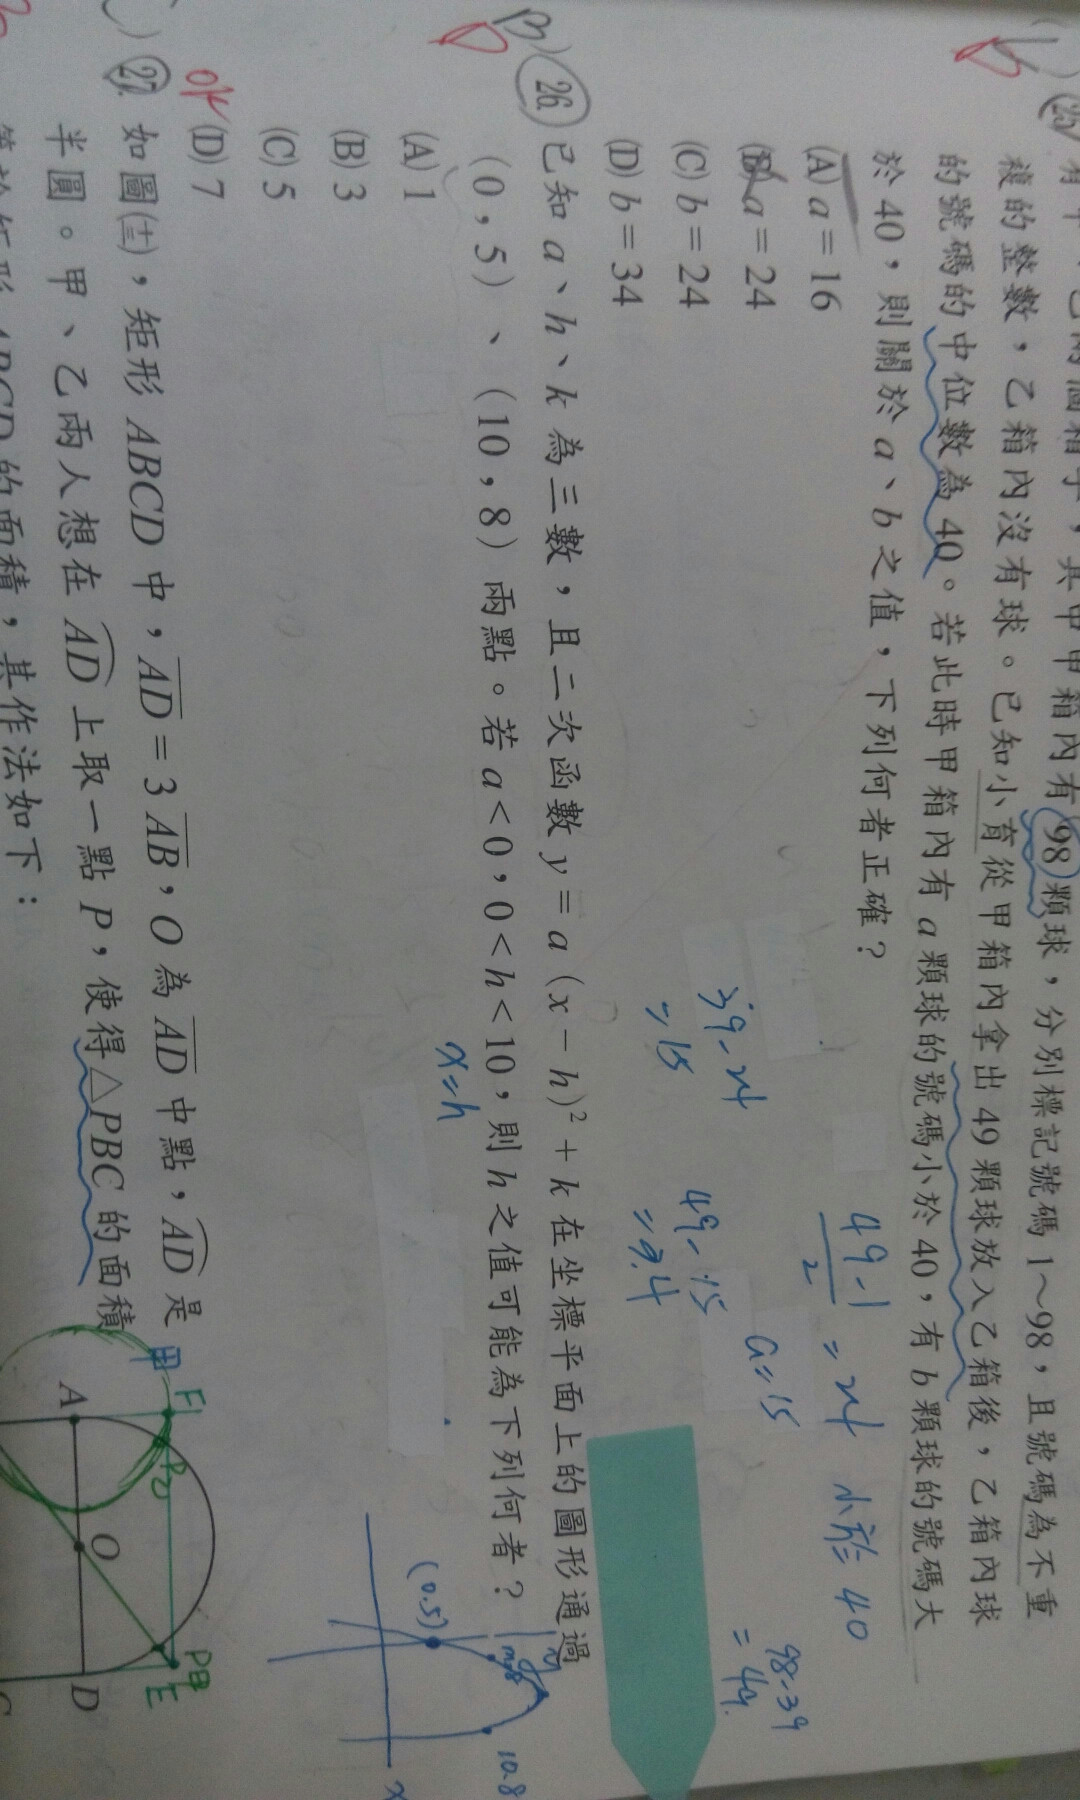 25. 有甲、乙兩個箱子，其中甲箱內有 98 顆球，分別標記號碼 1～98，且號碼為不重
複的整數，乙箱內沒有球。已知小育從甲箱內拿出 49 顆球放入乙箱後，乙箱內球
的號碼的中位數為 40。若此時甲箱內有 a 顆球的號碼小於 40，有 b 顆球的號碼大
於 40，則關於 a、b 之值，下列何者正確？
(A) a = 16
(B) a = 24
(C) b = 24
(D) b = 34
49-1
2
= 24
小於 40
39-24
= 15
49-15
= 34
a=15
98-39
= 49
B)
26. 已知 a、h、k 為三數，且二次函數 y = a (x − h)² + k 在坐標平面上的圖形通過
(0 , 5)、(10 , 8) 兩點。若 a < 0，0 < h < 10，則 h 之值可能為下列何者？
(A) 1
(B) 3
(C) 5
(D) 7
x=h
(0.5)
10.8
x
ok
27. 如圖(十三)，矩形 ABCD 中，AD = 3 AB，O 為 AD 中點，AD 是
半圓。甲、乙兩人想在 AD 上取一點 P，使得△PBC 的面積
等於矩形 ABCD 的面積，其作法如下：
甲
F
A
O
D
E
C